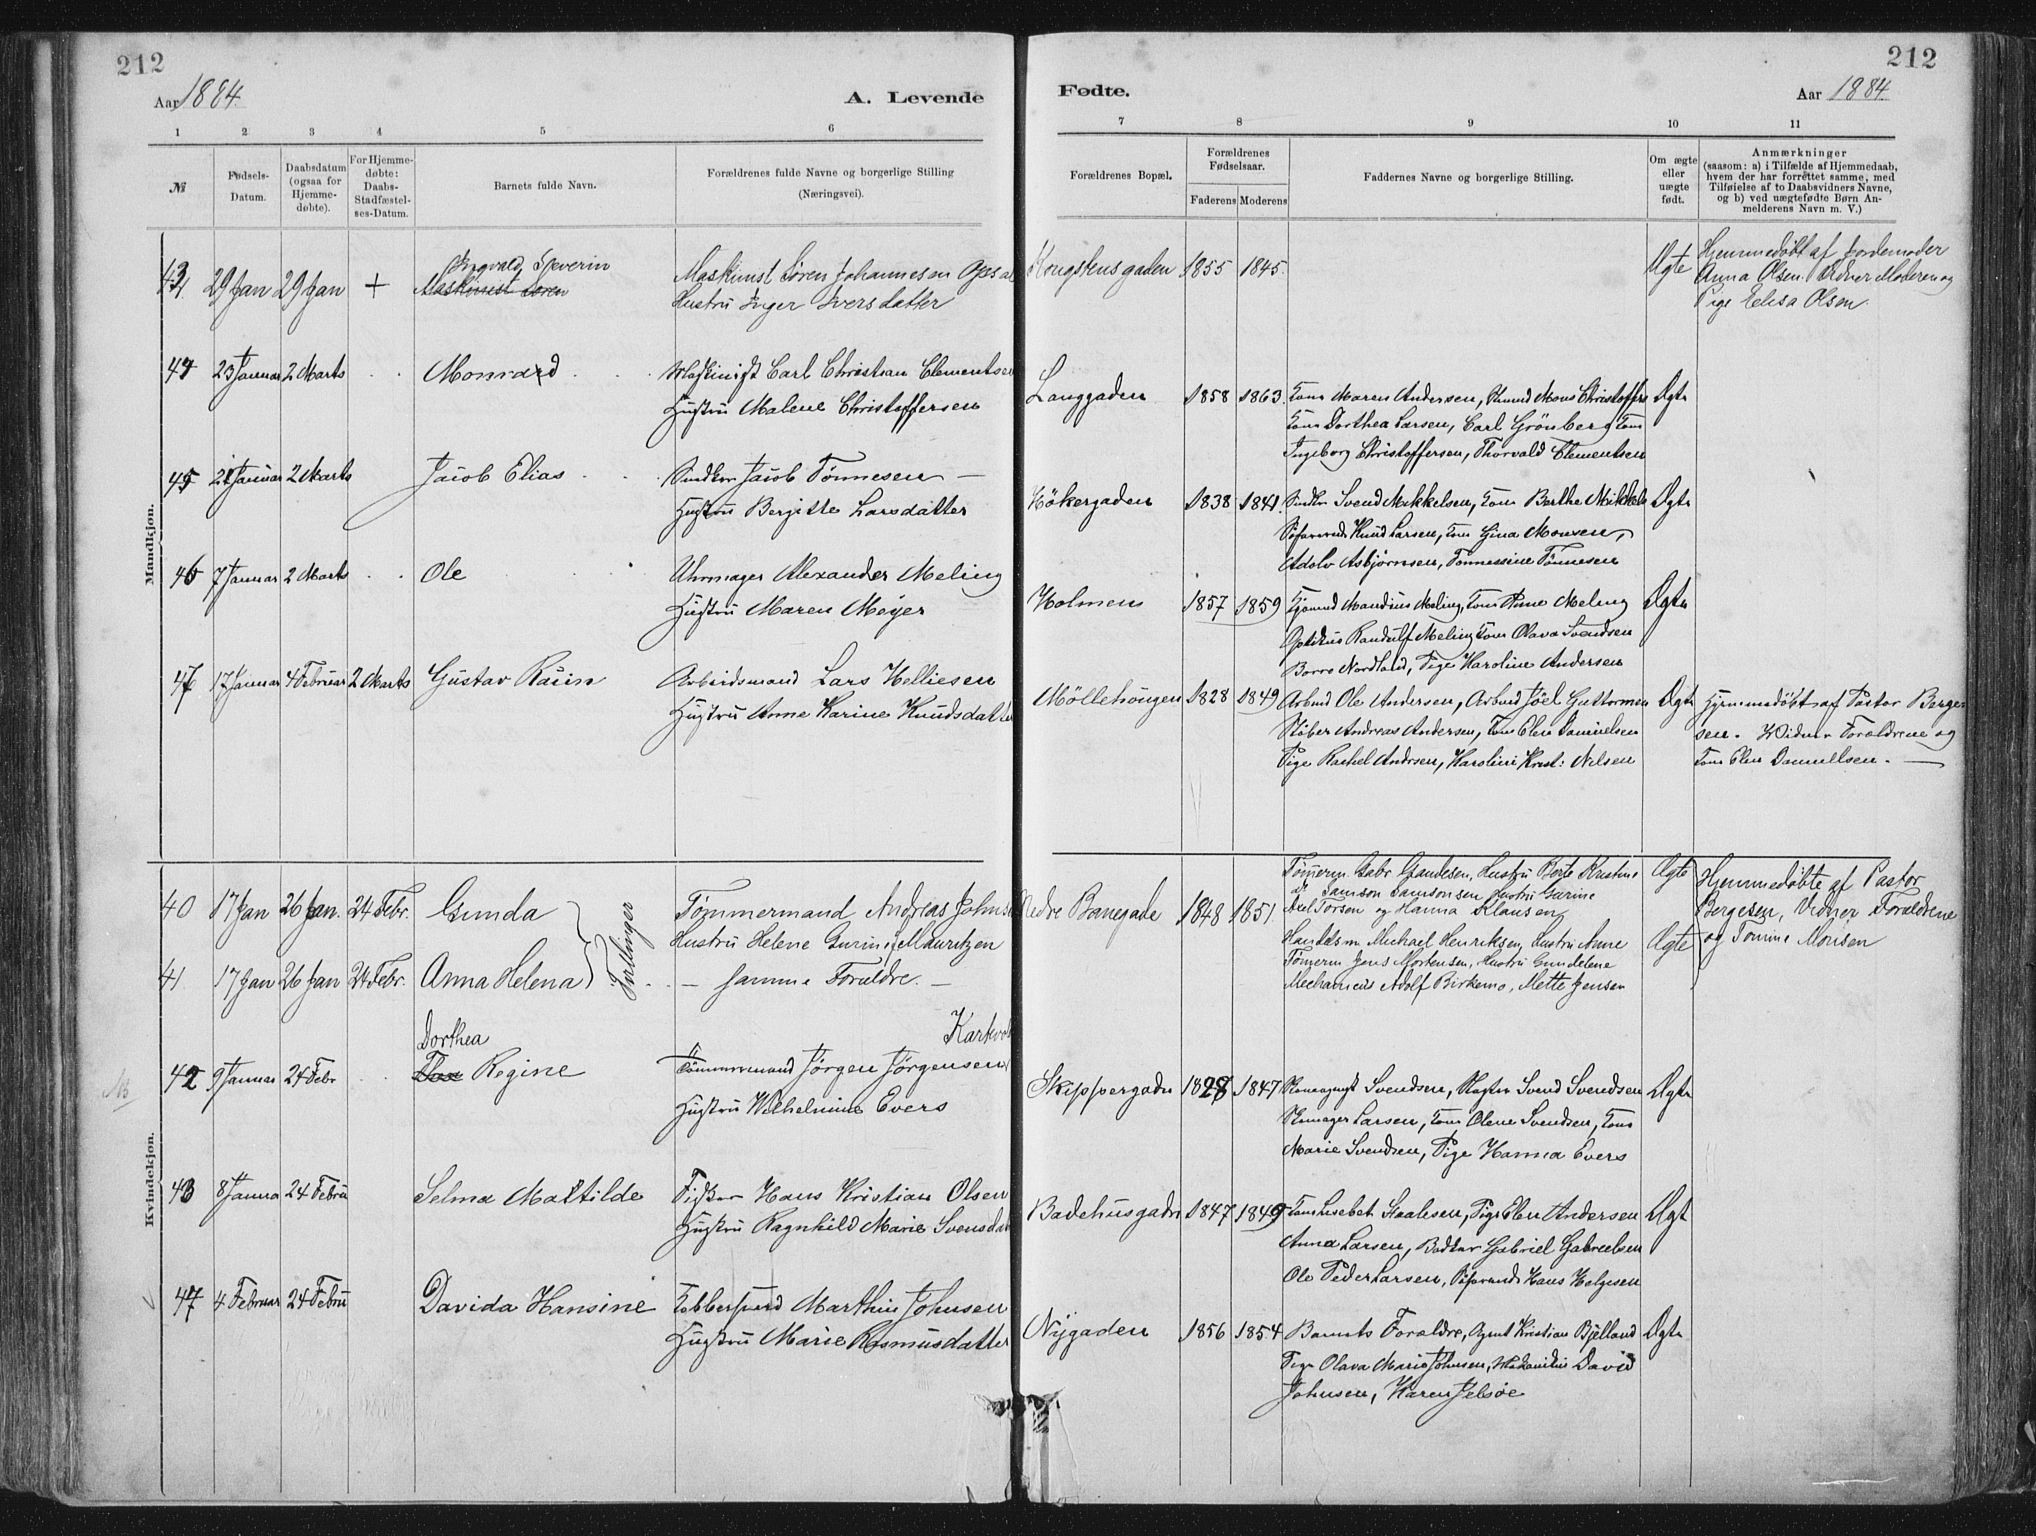 212
Aar 1884.
A. Levende
1 2 3 4 5 6
№
Fødsels-Datum.
Daabsdatum (ogsaa for Hjemme-døbte).
For Hjemme-døbte: Daabs-Stadfæstel-ses-Datum.
Barnets fulde Navn.
Forældrenes fulde Navne og borgerlige Stilling
(Næringsvei).
Mandkjøn.
Ingvald Severin
43 29 Jan 29 Jan + Maskinist Søren Maskinist Søren Johannesen
Hustru Inger Iversdatter
44 23 Januar 2 Marts Monrad Maskinist Carl Christian Clementsen
Hustru Malene Christoffersen
45 21 Januar 2 Marts Jacob Elias Jacob Tønnesen
Hustru Bergitte Larsdatter
46 7 Januar 2 Marts Ole Uhrmager Alexander Meling
Hustru Maren Meyer
47 17 Januar 4 Februar 2 Marts Gustav Arbeidsmand Lars Helliesen
Hustru Anne Karine Knudsdatter
Kvindekjøn.
40 17 Jan 26 Jan. 24 Febr. Gunda Tømmermand Andreas Johnsen
Hustru Helene Mauritzen
Tvillinger
41 17 Jan 26 Jan 24 Febr. Anna Helena — samme Forældre. —
Dorthea
42 9 Januar 24 Febr Regine Tømmermand Jørgen Jørgensen
Hustru Wilhelmine Evers
43 8 Janua 24 Febru Selma Mathilde Fisker Hans Kristian Olsen
Hustru Ragnhild Marie Svensdat
47 4 Februar 24 Febru Davida Hansine Kobbersmed Marthin Johnsen
Hustru Marie Rasmusdatter
212
Fødte.
Aar 1884.
7 8 9 10 11
Forældrenes Bopæl.
Forældrenes Fødselsaar.
Faderens Moderens
Faddernes Navne og borgerlige Stilling.
Om ægte eller uægte født.
Anmærkninger
(saasom: a) i Tilfælde af Hjemmedaab,
hvem der har forrettet samme, med
Tilføielse af to Daabsvidners Navne,
og b) ved uægtefødte Børn An-
melderens Navn m. V.)
Kongstensgaden 1855 1845. Ægte Hjemmedøbt af Jordemoder
Anna Olsen. Vidner Moderen og
Pige Elisa Olsen.
Langgaden 1858 1863. Kone Maren Andersen, Mons Christoffers Ægte
Kone Dorthea Larsen, Carl Grönberg, Kone
Ingeborg Christoffersen, Thorvald Clementsen
Hökergaden 1838 1841. Svend Mikkelsen, Kone Berthe Mikkels Ægte
Knud Larsen, Kone Gina Monsen,
Adolv Asbjørnsen, Tønnessine Tønnesen
Holmen 1857 1859 Maudius Meling, Kone Anne Meling Ægte
Optikus Randulf Meling, Kone Olava Svendsen
Nordland, Pige Karoline Andersen
Möllehougen 1828 1849 Arbmd Ole Andersen, Arbmd Joel Guttormsen Ægte Hjemmedøbt af Pastor Berge-
Støber Andreas Andersen, Kone Elen Danielsen sen. Vidner Forældrene og
Pige Rachel Andrsen, Karoline Krist: Nilsen Kone Elen Daniellsen. —
Nedre Banegade 1848 1851. Tømerm. Gabr. Hustru Berte Kristine Ægte Hjemmedøbte af Pastor
do Samson Samsonsen Hustru Gurine Bergesen, Vidner Forældrene
Axel Torsen og Hanna Klausen, og Tomine Monsen
Handelsm Michael Henriksen, Hustru Anne Ægte
Tømerm Jens Mortensen, Hustru Gundelene
Mechanicus Adolf Birkemo, Mette Jensen
Skippergaden 1828 1847 Svendsen, Svend Svendsen Ægte
Skomager Larsen, Kone Olene Svendsen, Kone
Marie Svendsen, Pige Hanna Evers
Badehusgaden 1847 1849 Kone Lisebet Staalesen, Pige Elen Andersen Ægt
Anna Larsen, Gabriel Gabrielsen
Ole Peder Larsen, Hans Helgesen
Nygaden 1856 1854 Barnets Forældre, Agent Kristian Bjelland Ægte
Pige Olava Marie Johnsen, David
Johnsen, Karen Jelsøe